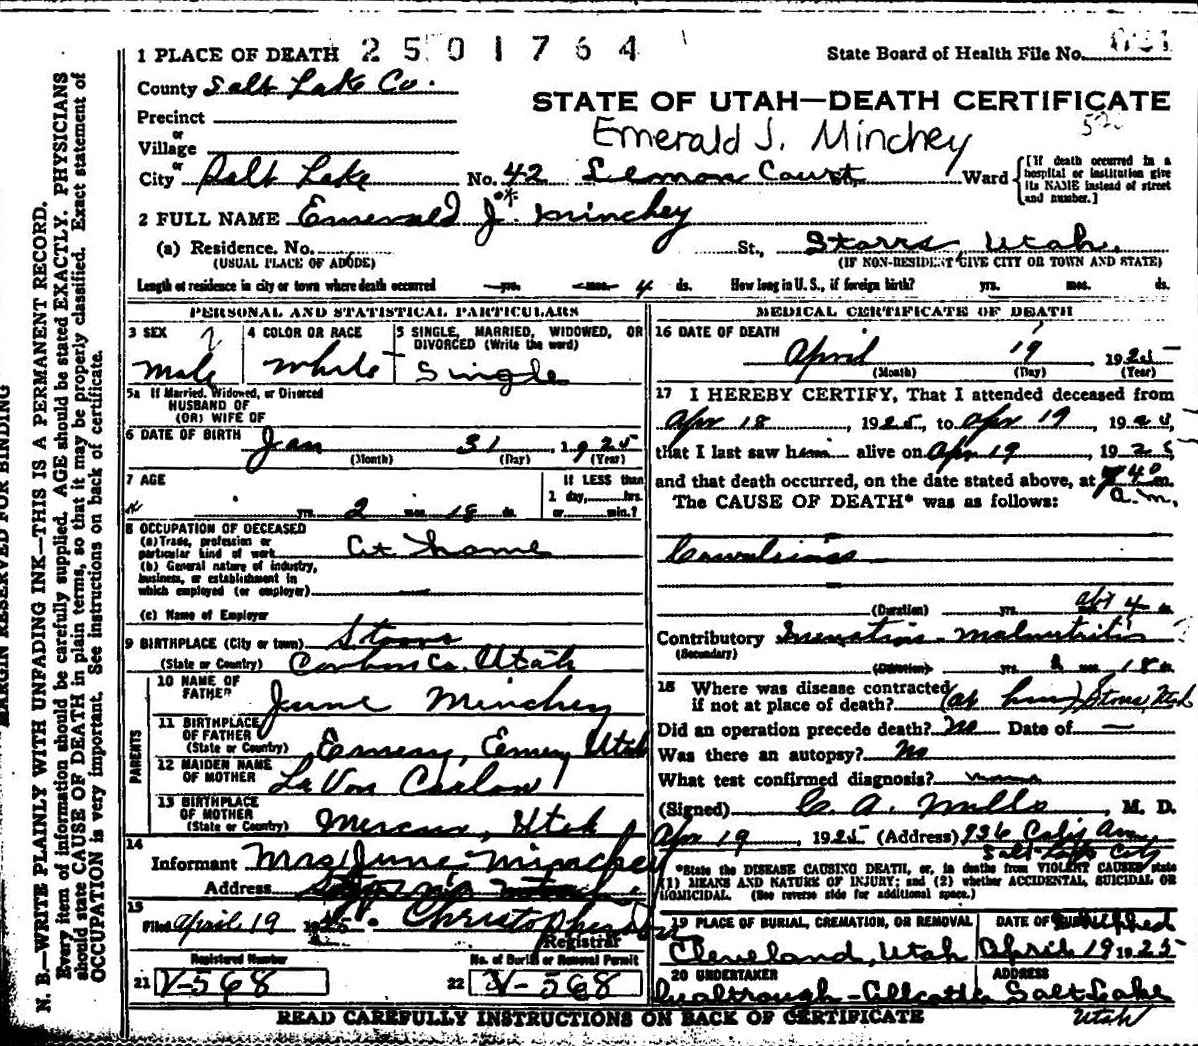 1 PLACE OF DEATH 2501764
State Board of Health File No.
County Salt Lake Co.
STATE OF UTAH—DEATH CERTIFICATE
Precinct
Emerald J. Minchey
or
Village
or
City Salt Lake No. 42 Lemon Court St., Ward
[If death occurred in a hospital or institution give its NAME instead of street and number.]
2 FULL NAME Emerald J. Minchey
(a) Residence. No. St., Storrs, Utah.
(USUAL PLACE OF ABODE) (IF NON-RESIDENT GIVE CITY OR TOWN AND STATE)
Length of residence in city or town where death occurred yrs. mos. 4 ds. How long in U. S., if foreign birth? yrs. mos. ds.
PERSONAL AND STATISTICAL PARTICULARS
3 SEX
Male
4 COLOR OR RACE
White
5 SINGLE, MARRIED, WIDOWED, OR
DIVORCED (Write the word)
Single
5a If Married, Widowed, or Divorced
HUSBAND OF
(OR) WIFE OF
6 DATE OF BIRTH Jan 31 1925
(Month) (Day) (Year)
7 AGE
If LESS than
1 day, hrs.
yrs. 2 mos. 18 ds. or min.?
8 OCCUPATION OF DECEASED
(a) Trade, profession or
particular kind of work At home
(b) General nature of industry,
business, or establishment in
which employed (or employer)
(c) Name of Employer
9 BIRTHPLACE (City or town) Storrs
(State or Country) Carbon Co. Utah
PARENTS
10 NAME OF
FATHER June Minchey
11 BIRTHPLACE
OF FATHER
(State or Country) Emery, Emery Utah
12 MAIDEN NAME
OF MOTHER LaVon Carlow
13 BIRTHPLACE
OF MOTHER
(State or Country) Mercur, Utah
14
Informant Mrs June Minchey
Address
15
Filed April 19 1925 Christopherson
Registrar
Registered Number No. of Burial or Removal Permit
21 V-568 22 V-568
MEDICAL CERTIFICATE OF DEATH
16 DATE OF DEATH
April 19 1925
(Month) (Day) (Year)
17 I HEREBY CERTIFY, That I attended deceased from
Apr 18, 1925, to Apr 19, 1925,
that I last saw him alive on Apr 19, 1925
and that death occurred, on the date stated above, at 40 m.
a.m.
The CAUSE OF DEATH* was as follows:
Convulsions
(Duration) yrs. abt 4
Contributory Inanition - malnutrition
(Secondary)
(Duration) yrs. 2 mos. 18 ds.
18 Where was disease contracted
if not at place of death? (at home) Storrs, Utah
Did an operation precede death? No Date of —
Was there an autopsy? No
What test confirmed diagnosis?
(Signed) C. A. Mills, M. D.
Apr 19, 1925 (Address) 936 Calif Ave.
Salt Lake City
*State the DISEASE CAUSING DEATH, or, in deaths from VIOLENT CAUSES state
(1) MEANS AND NATURE OF INJURY; and (2) whether ACCIDENTAL, SUICIDAL OR
HOMICIDAL. (See reverse side for additional space.)
19 PLACE OF BURIAL, CREMATION, OR REMOVAL
Cleveland, Utah
DATE OF Shipped
April 19 1925
20 UNDERTAKER ADDRESS
Salt Lake
Utah
READ CAREFULLY INSTRUCTIONS ON BACK OF CERTIFICATE
MARGIN RESERVED FOR BINDING
N. B.—WRITE PLAINLY WITH UNFADING INK—THIS IS A PERMANENT RECORD.
Every item of information should be carefully supplied. AGE should be stated EXACTLY. PHYSICIANS
should state CAUSE OF DEATH in plain terms, so that it may be properly classified. Exact statement of
OCCUPATION is very important. See instructions on back of certificate.